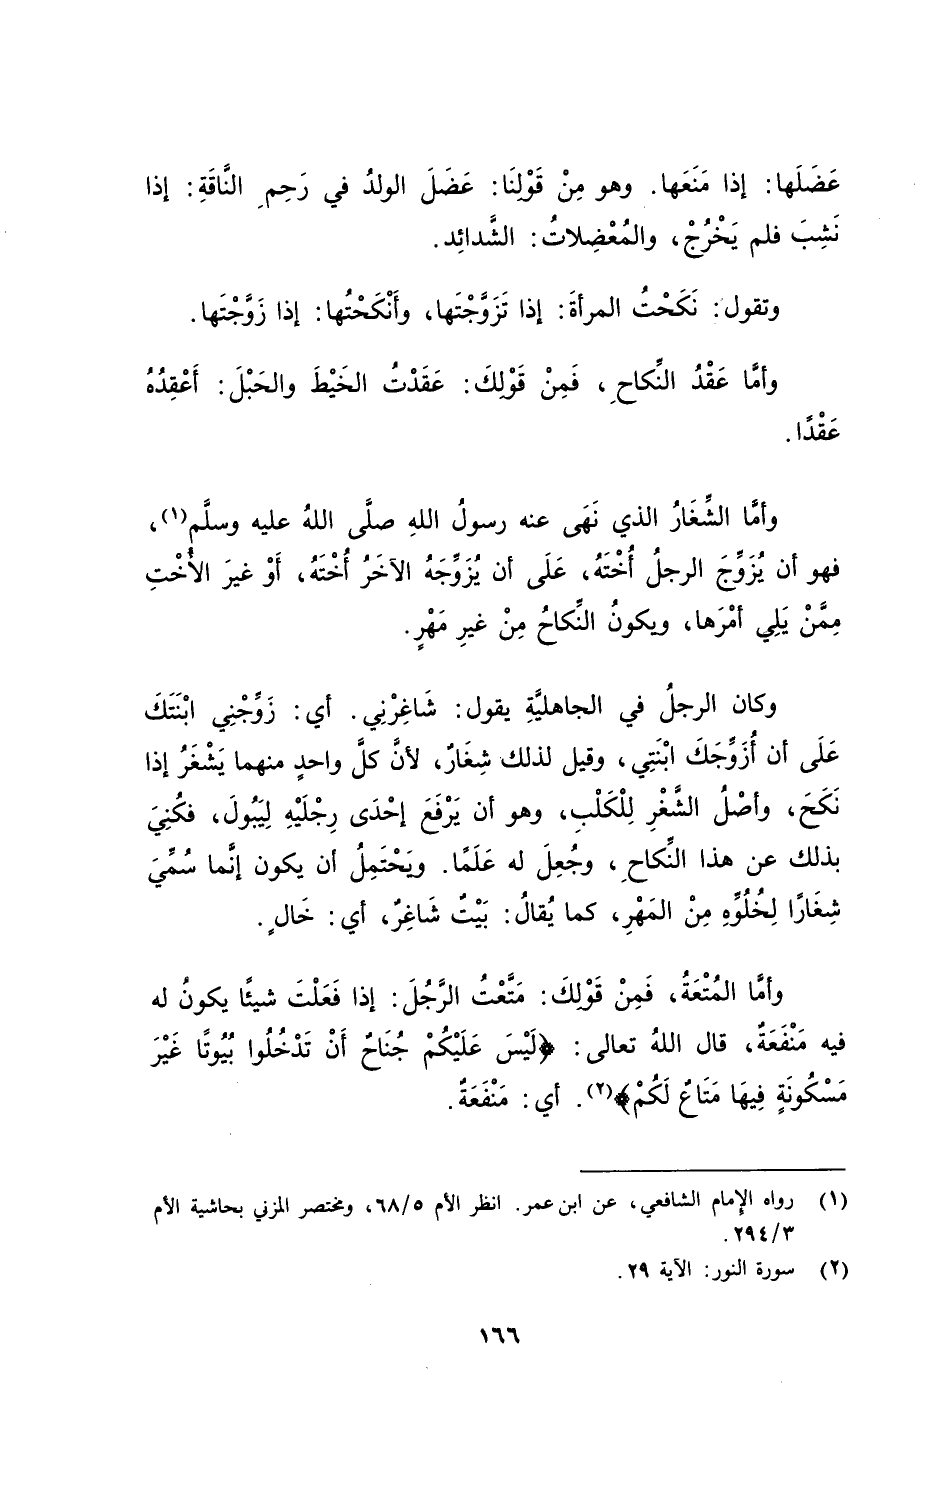 عَضَلَها: إذا مَنَعَها. وهو مِنْ قَوْلِنَا: عَضَلَ الولدُ في رَحِمِ النَّاقَةِ: إذا
نَشِبَ فلم يَخْرُجْ، والمُعْضِلاتُ: الشَّدائِد.
وتقول: نَكَحْتُ المرأةَ: إذا تَزَوَّجْتَها، وأَنْكَحْتُها: إذا زَوَّجْتَها.
وأمَّا عَقْدُ النِّكاحِ، فَمِنْ قَوْلِكَ: عَقَدْتُ الخَيْطَ والحَبْلَ: أَعْقِدُهُ
عَقْدًا.
وأمَّا الشِّغَارُ الذي نَهَى عنه رسولُ اللهِ صلَّى اللهُ عليه وسلَّم(١)،
فهو أن يُزَوِّجَ الرجلُ أُخْتَهُ، عَلَى أن يُزَوِّجَهُ الآخَرُ أُخْتَهُ، أَوْ غيرَ الأُخْتِ
مِمَّنْ يَلِي أمْرَها، ويكونُ النِّكاحُ مِنْ غيرِ مَهْرٍ.
وكان الرجلُ في الجاهليَّةِ يقول: شَاغِرْنِي. أي: زَوِّجْنِي ابْنَتَكَ
عَلَى أن أُزَوِّجَكَ ابْنَتِي، وقيل لذلك شِغَارٌ، لأنَّ كلَّ واحدٍ منهما يَشْغَرُ إذا
نَكَحَ، وأصْلُ الشَّغْرِ لِلْكَلْبِ، وهو أن يَرْفَعَ إحْدَى رِجْلَيْهِ لِيَبُولَ، فكُنِيَ
بذلك عن هذا النِّكاحِ، وجُعِلَ له عَلَمًا. ويَحْتَمِلُ أن يكون إنَّما سُمِّيَ
شِغَارًا لِخُلُوِّهِ مِنْ المَهْرِ، كما يُقالُ: بَيْتٌ شَاغِرٌ، أي: خَالٍ.
وأمَّا المُتْعَةُ، فَمِنْ قَوْلِكَ: مَتَّعْتُ الرَّجُلَ: إذا فَعَلْتَ شيئًا يكونُ له
فيه مَنْفَعَةٌ، قال اللهُ تعالى: ﴿لَيْسَ عَلَيْكُمْ جُنَاحٌ أَنْ تَدْخُلُوا بُيُوتًا غَيْرَ
مَسْكُونَةٍ فِيهَا مَتَاعٌ لَكُمْ﴾(٢). أي: مَنْفَعَةٌ.
(١) رواه الإمام الشافعي، عن ابن عمر. انظر الأم ٦٨/٥، ومختصر المزني بحاشية الأم
٢٩٤/٣.
(٢) سورة النور: الآية ٢٩.
١٦٦